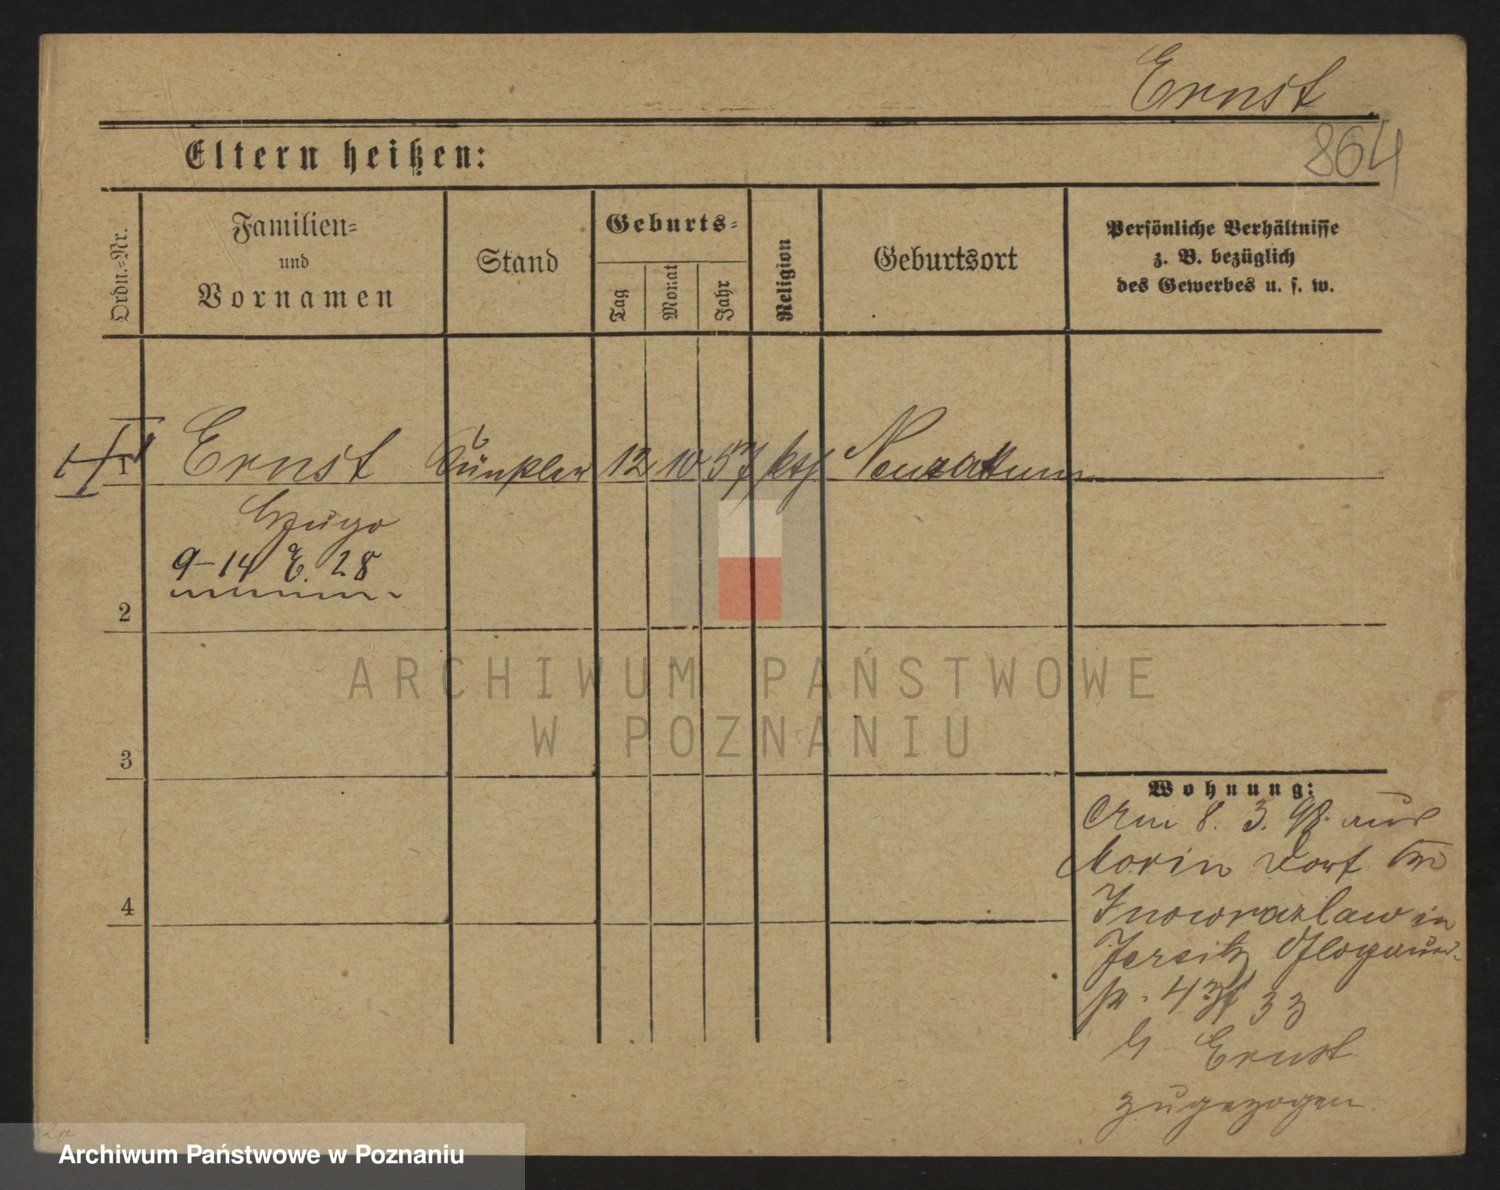 Ernst
864
Eltern heißen:
Ordn.-Nr.
Familien-
und
Vornamen
Stand
Geburts-
Tag
Monat
Jahr
Religion
Geburtsort
Persönliche Verhältnisse
z. B. bezüglich
des Gewerbes u. s. w.
1 Ernst 12 10 57 kth
Hugo
9-14 E. 28
2
3
4
Wohnung:
Am 8. 3. 98. aus
Morin Dorf Kr
Inowrazlaw in
Jersitz Glogauer-
str. 43 33
b Ernst
zugezogen
ARCHIWUM PAŃSTWOWE
W POZNANIU
Archiwum Państwowe w Poznaniu